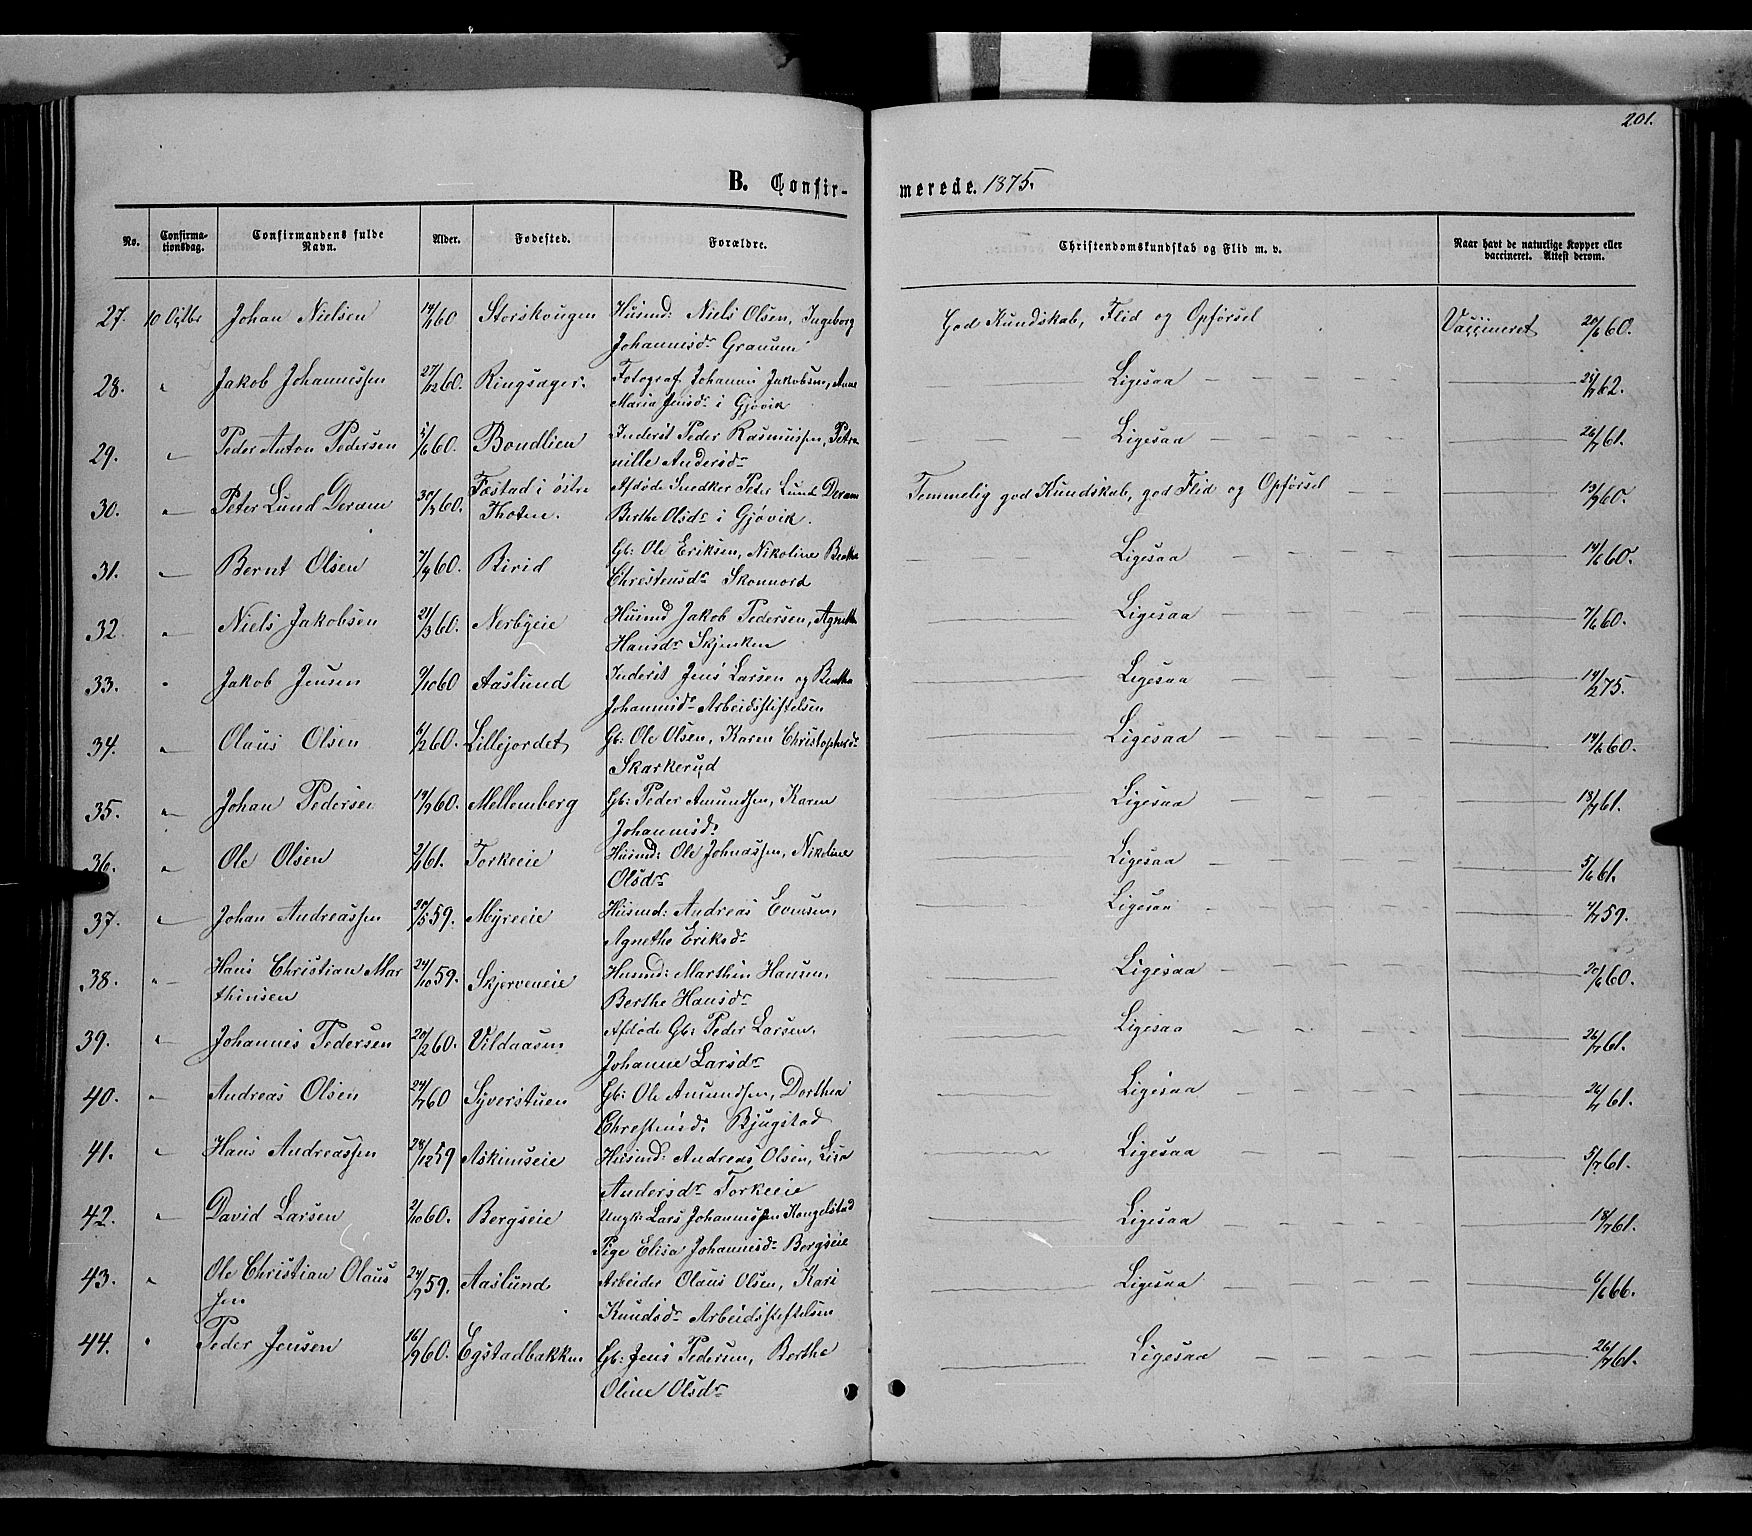 201.
B. Confir- merede. 1875.
No. Confirma-tionsdag. Confirmandens fulde Navn. Alder. Fødested. Forældre. Christendomskundskab og Flid m. v. Naar havt de naturlige Kopper eller vaccineret. Attest derom.
27. 10 Octbr Johan Nielsen 14/1 60 Storskougen Husmd: Niels Olsen, Ingeborg God Kundskab, Flid og Opførsel Vaccineret 20/6 60.
Johannisdr Granum
28. " Jakob Johannessen 27/12 60. Ringsager. Fotograf Johannes Jakobsen, Anne — Ligesaa — 62.
Maria Jensdr i Gjøvik
29. " Peder Anton Pedersen 5/6 60. Bondlien Inderst Peder Rasmussen, Petro — Ligesaa — 26/7 61.
nille Andersdr
30. " Peter Lund Deram 30/3 60. Fæstad i østre Afdøde Snedker Peter Lund Deram Temmelig god Kundskab, god Flid og Opførsel — 13/9 60.
Thoten. Berthe Olsdr i Gjøvik.
31. " Bernt Olsen 7/4 60. Birid Gb: Ole Eriksen, Nikoline Beathe — Ligesaa — 14/6 60.
Christensdr Skonnord
32. " Niels Jakobsen 21/3 60. Nerbyeie Husmd Jakob Pedersen, Agnethe — Ligesaa — 7/6 60.
Hansdr Skjenken
33. " Jakob Jensen 7/10 60 Aaslund Inderst Jens Larsen og Beatha — Ligesaa — 14/2 75.
Johannisdr Arbeidsstiftelsen
34. " Olaus Olsen 6/2 60. Lillejordet Gb: Ole Olsen, Karen Christophersdr — Ligesaa — 14/6 60.
Skarkerud
35. " Johan Pedersen 14/9 60. Mellemberg Gb: Peder Amundsen, Karen — Ligesaa — 18/7 61.
Johannisdr
36. " Ole Olsen 2/1 61. Torkeeie Husmd: Ole Johnassen, Nikoline — Ligesaa — 5/6 61.
Olsdr
37. " Johan Andreassen 20/5 59. Myreeie Husmd: Andreas Evensen, — Ligesaa — 4/7 59.
Agnethe Eriksdr
38. " Hans Christian Mar 24/10 59. Skjerveneie Husmd: Marthin Hansen, — Ligesaa — 20/6 60.
thinsen Berthe Hansdr
39. " Johannes Pedersen 20/2 60. Vildaasen Afdøde Gb: Peder Larsen, — Ligesaa — 26/7 61.
Johanne Larsdr
40. " Andreas Olsen 24/7 60 Syverstuen Gb: Ole Amundsen, Dorthea — Ligesaa — 26/7 61.
Christensdr Bjugstad
41. " Hans Andreassen 28/12 59 Askimseie Husmd: Andreas Olsen, Lisa — Ligesaa — 5/7 61.
Andersdr Torkeeie
42. " David Larsen 2/10 60. Bergseie Ungk: Lars Johannessen Kongelstad — Ligesaa — 18/7 61.
Pige Elisa Johannisdr Bergseie
43. " Ole Christian Olaus 24/9 59. Aaslund Arbeider Olaus Olsen, Kari — Ligesaa — 6/6 66.
sen Knudsdr Arbeidsstiftelsen
44. " Peder Jensen 16/9 60. Egstadbakken Gb: Jens Pedersen, Berthe — Ligesaa — 26/7 61.
Oline Olsdr